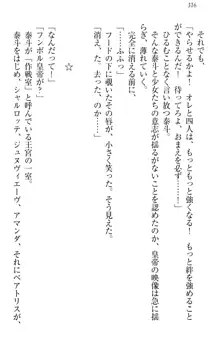 326
それでも。
「やらせるかよ！　オレと四人は、もっともっと強くなる！　もっと絆を強めること
ができるんだ！　待ってろよ、おまえを必ず……！」
ひるむことなく言い放つ泰斗。
そんな泰斗と少女たちの意志が揺るがないことを認めたのか、皇帝の映像は急に揺
らぎ、薄れていく。
完全に消える前に、
「……ふふっ」
フードの下に覗いたその唇が、小さく笑った。そう見えた。
☆
「なんだって！」
「ワンボル皇帝が！」
泰斗が「作戦室」と呼んでいる王宮の一室。
泰斗をはじめ、シャルロッテ、ジュヌヴィエーヴ、アマンダ、それにベアトリスが